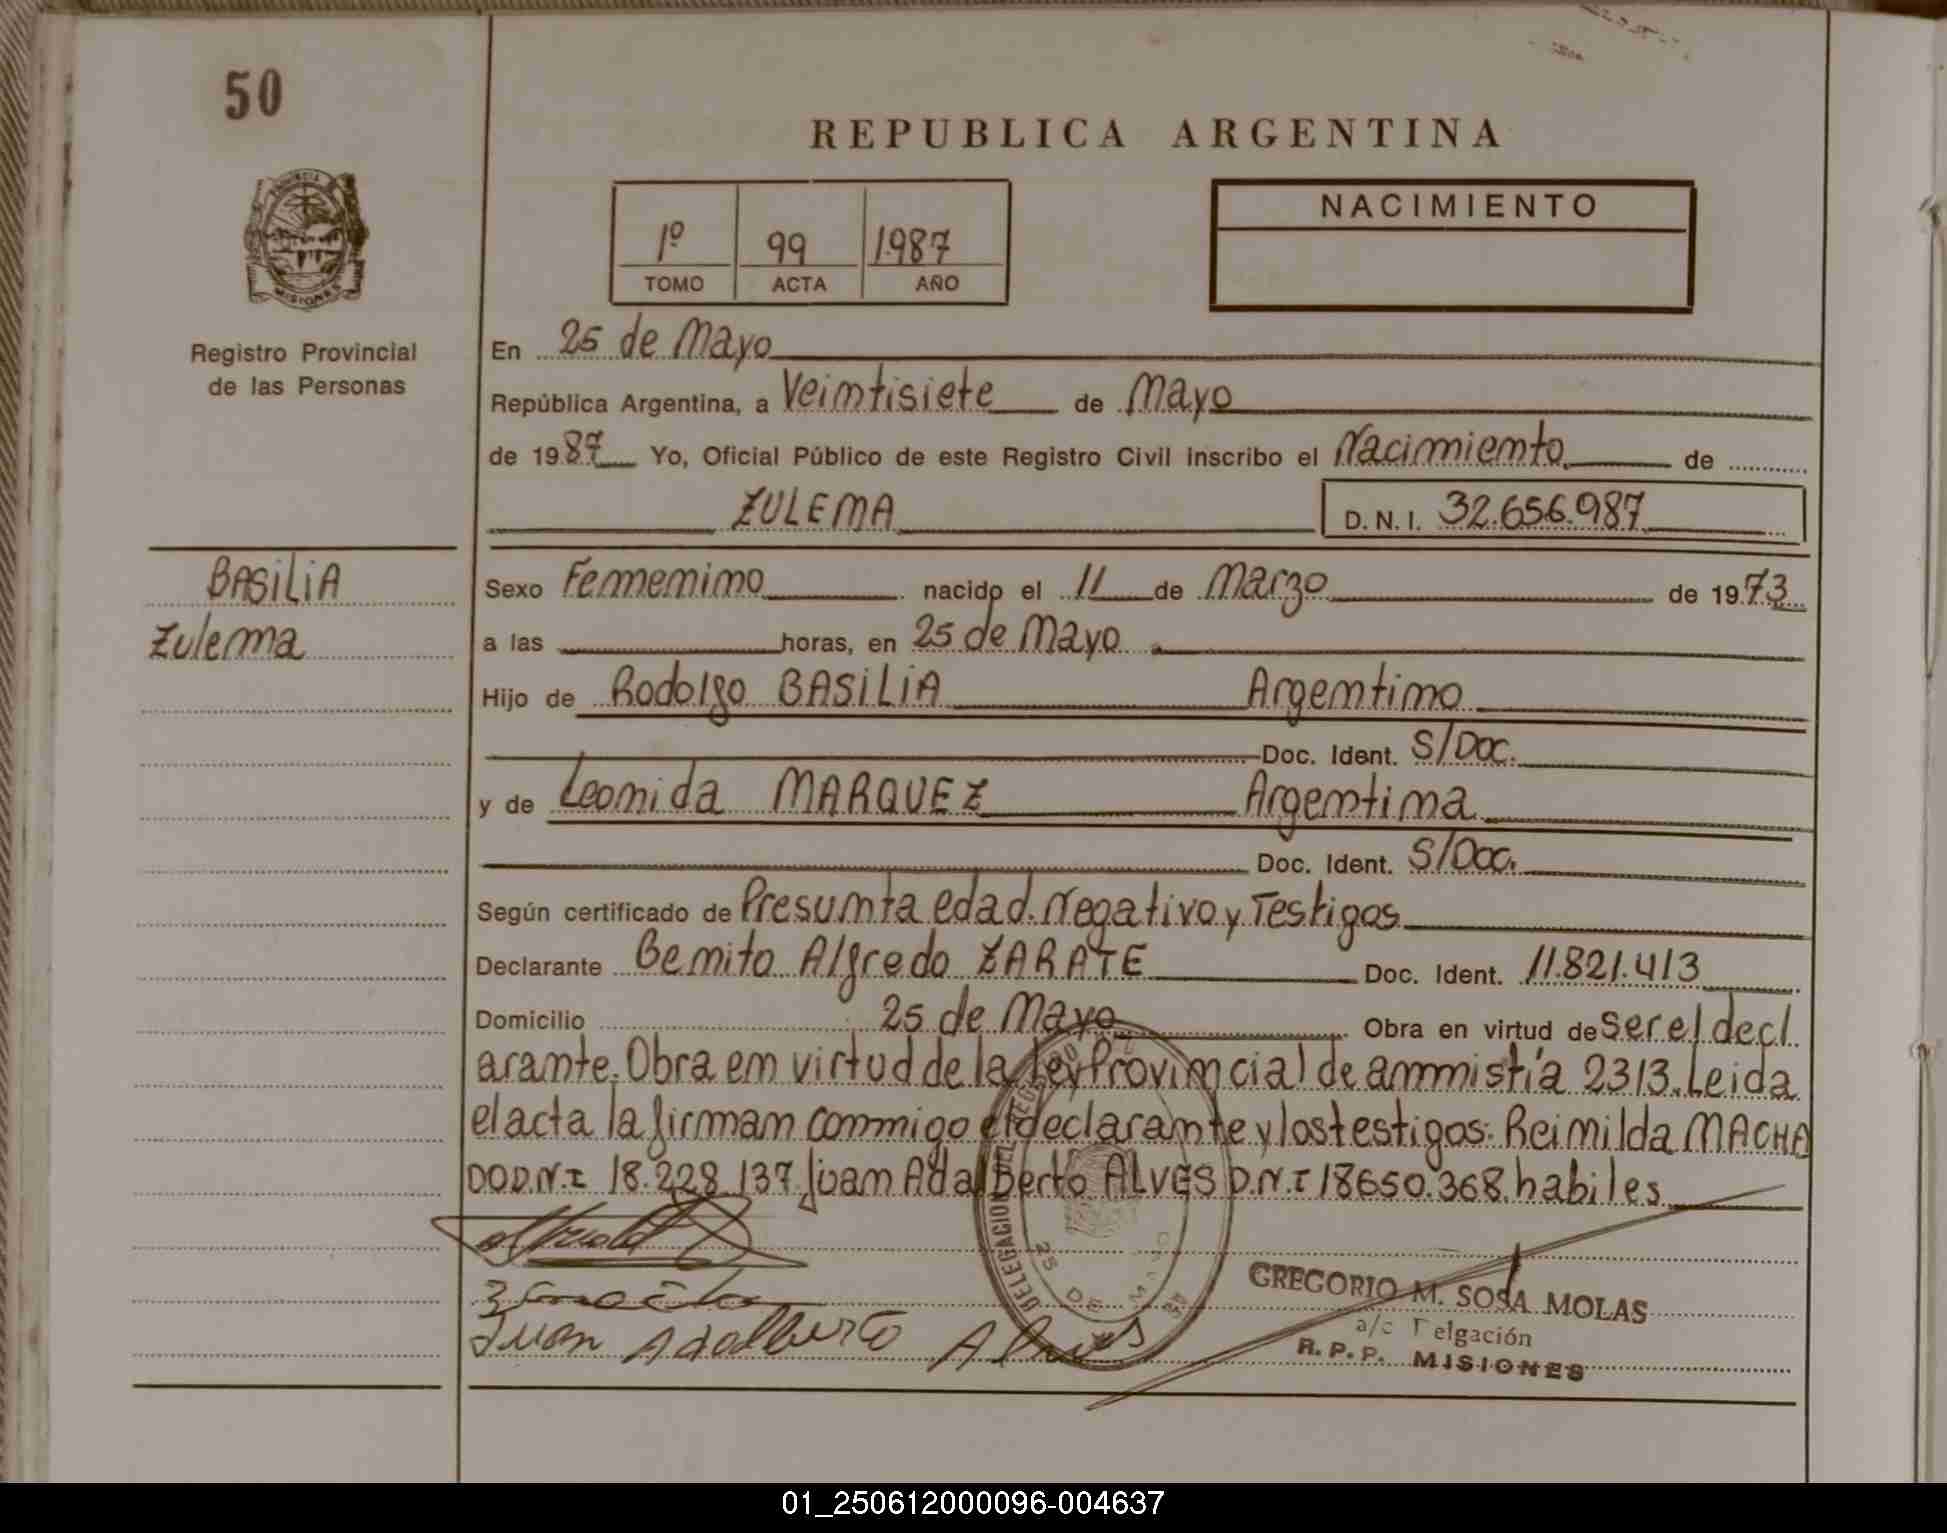 50
REPUBLICA ARGENTINA
PROVINCIA DE
MISIONES
1º 99 1987
TOMO ACTA AÑO
NACIMIENTO
Registro Provincial
de las Personas
En 25 de Mayo
República Argentina, a Veintisiete de Mayo
de 1987 Yo, Oficial Público de este Registro Civil inscribo el Nacimiento de
ZULEMA D.N.I. 32.656.987
BASILIA
Zulema
Sexo Femenino nacido el 11 de Marzo de 1973
a las horas, en 25 de Mayo
Hijo de Rodolfo BASILIA Argentino
Doc. Ident. S/Doc.
y de Leonida MARQUEZ Argentina
Doc. Ident. S/Doc.
Según certificado de Presunta edad. Negativo y Testigos
Declarante Benito Alfredo ZARATE Doc. Ident. 11.821.413
Domicilio 25 de Mayo Obra en virtud de ser el decl
arante. Obra en virtud de la Ley Provincial de ammistía 2313. Leida
el acta la firman conmigo el declarante y los testigos: Reinilda MACHA
DO D.N.I 18.228 137 Juan Adalberto ALVES D.N.I 18650.368. habiles
DELEGACION DEL REGISTRO
25 DE MAYO
Juan Adalberto Alves
GREGORIO M. SOSA MOLAS
a/c Delgación
R.P.P. MISIONES
01_250612000096-004637